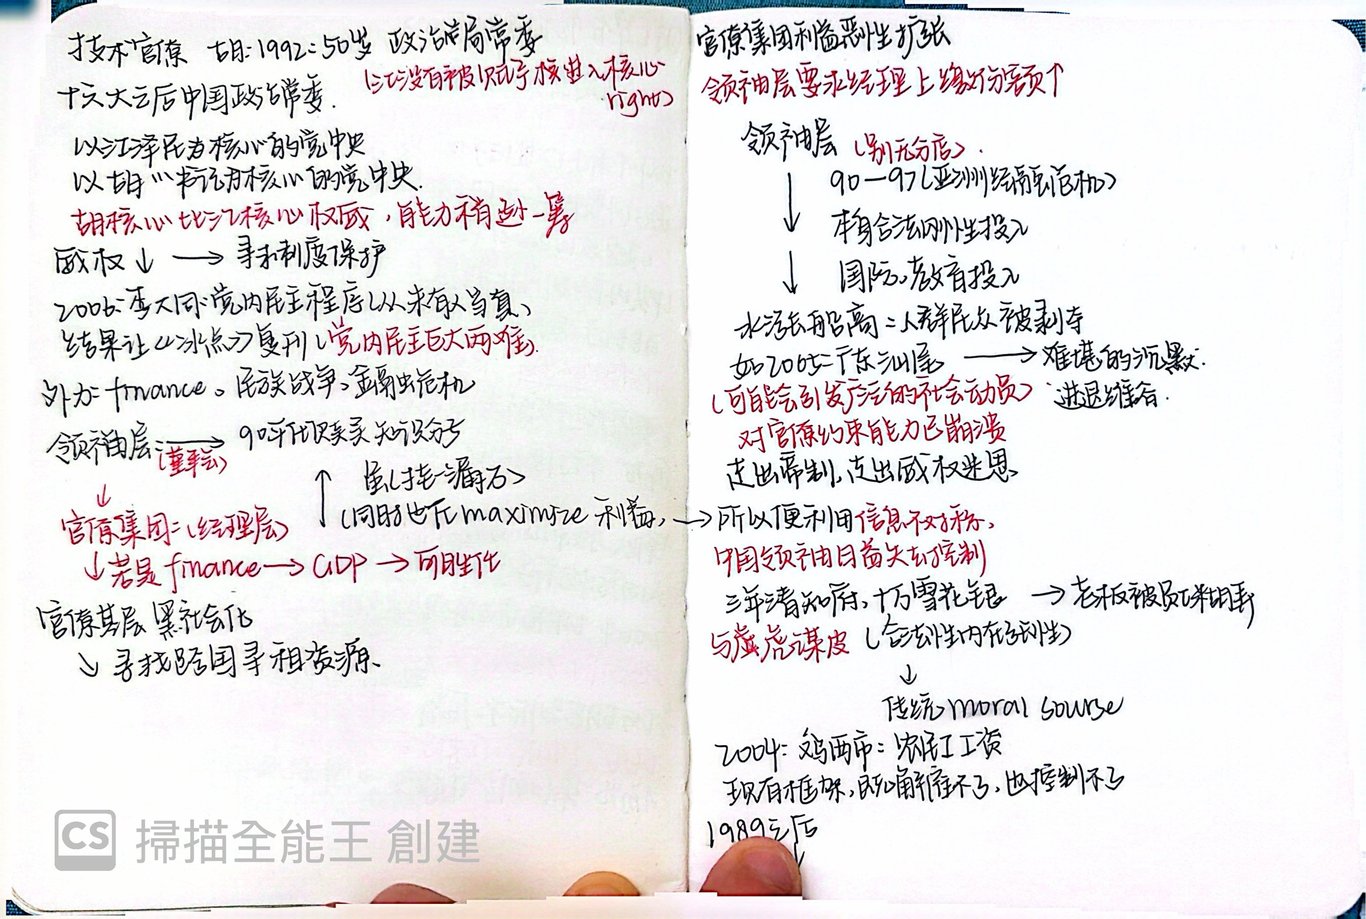 技术官僚 胡:1992:50岁 政治局常委
(江没有被赋予核进入核心
right)
十六大之后中国政治常委.
以江泽民为核心的党中央
以胡''书记为核心的党中央.
胡核心比江核心权威,能力稍逊一筹
威权↓ → 寻求制度保护
2006:李大同:党内民主程序(从来有人当真)
结果让《冰点》复刊(党内民主巨大两难).
外力:finance。民族战争。金融危机
领袖层:→ 90年代赎买知识分子
(董事会)
虽(挂一漏万)
官僚集团=(经理层)
(同时也在maximize 利益,
↓若是finance→GDP→可胜任
官僚基层黑社会化
↘寻找跨国寻租资源.
官僚集团利益恶性扩张
领袖层要求经理上缴份额↑
领袖层 (别无分店).
90—97(亚洲经融危机)
本身合法刚性投入
国际,教育投入
水涨船高:人群民众被剥夺
如2005:广东汕尾 → 难堪的沉默.
(可能会引发广泛的社会动员) 进退维谷.
对官僚约束能力已崩溃
走出帝制,走出威权迷思
→所以便利用信息不对称,
中国领袖日益失去控制
三年清知府,十万雪花银 → 老板被员工绑架
与虎谋皮 (合法性内在剥生)
↓
传统moral sourse
2004:鸡西市:农民工工资
现有框架,既解释不了,也控制不了
1989之后